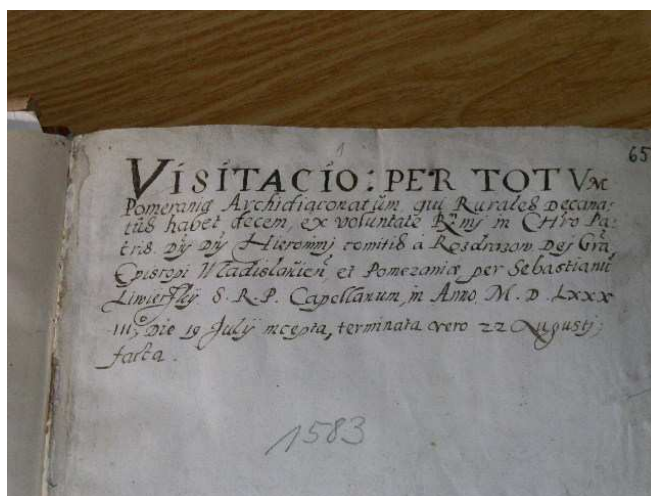 65
VISITACIO: PER TOTVM
Pomeraniæ Archidiaconatum, qui Rurales Decana-
tus habet decem, ex voluntate Rmi in Chro Pa-
tris Dni Dni Hieronimi comitis à Rosdrazow Dei Gra
Episcopi Wladislavien, et Pomeraniæ per Sebastianũ
S. R. P. Capellanum, in Anno M. D. LXXX
III, Die 19 Julij incepta, terminata vero 22 Augusti,
facta.
1583